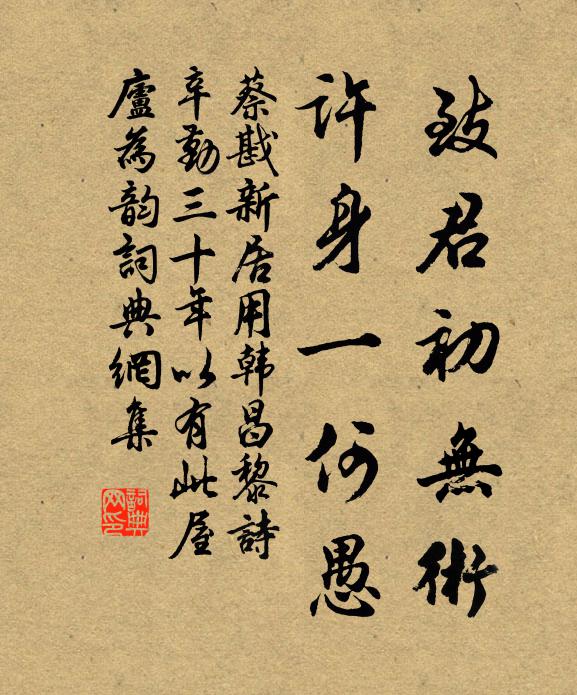 致君初無術
許身一何愚
蔡戡新居用韩昌黎詩
辛勤三十年以有此屋
廬為韵詞典網集
詞典網印